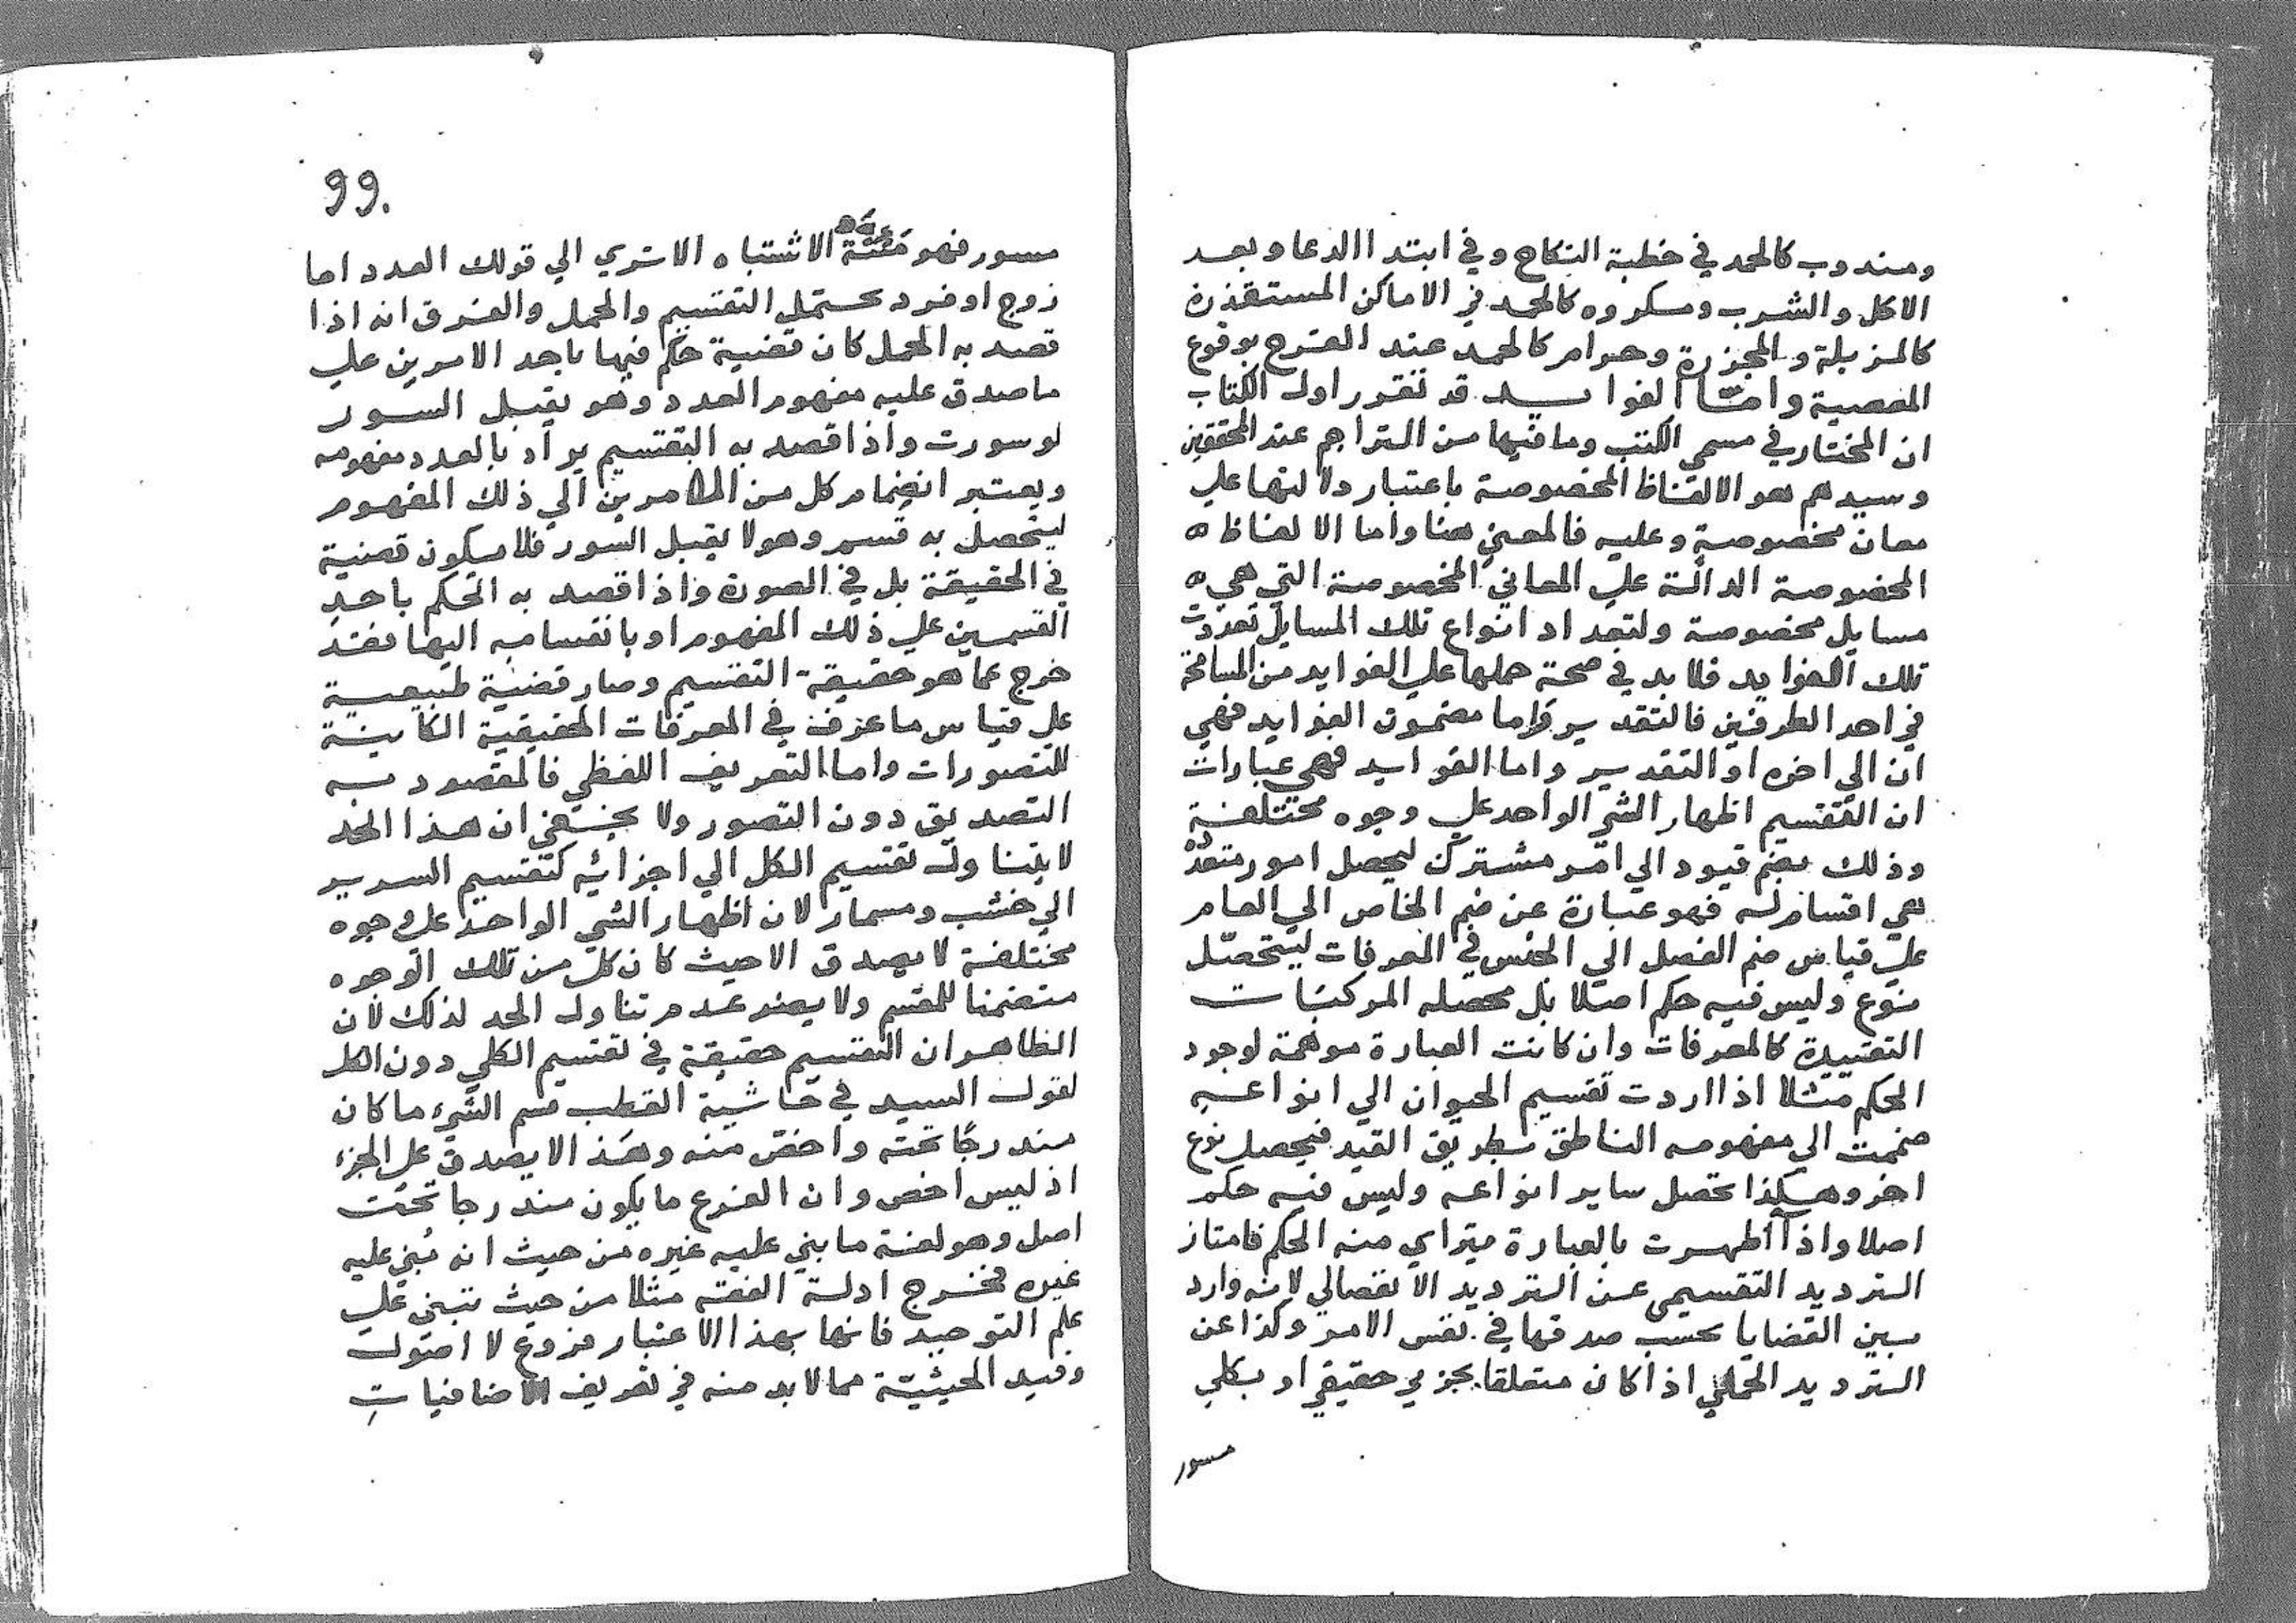 ومندوب كالحمد في خطبة النكاح وفي ابتدا الدعا وبعد
الاكل والشرب ومكروه كالحمد في الاماكن المستقذرة
كالمزبلة والمجزرة وحرام كالحمد عند الفرح بوقوع
المعصية وامّا الفوايد قد تقرر اول الكتاب
ان المختار في مسمي الكتب وما فيها من التراجم عند المحققين
وسيدهم هو الالفاظ المخصوصة باعتبار دلالتها علي
معان مخصوصة وعليه فالمعني هنا واما الالفاظ ه
المخصوصة الدالة علي المعاني المخصوصة التي هي ه
مسايل مخصوصة ولتعداد انواع تلك المسايل تعددت
تلك الفوايد فلابد في صحة حملها علي الفوايد من المسامحة
في احد الطرفين فالتقدير واما مضمون الفوايد فهي
ان الي اخره او التقدير واما الفوايد فهي عبارات
ان التقسيم اظهار الشي الواحد علي وجوه مختلفة
وذلك بضم قيود الي امر مشترك ليحصل امور متعدده
هي اقسام له فهو عبارة عن ضم الخاص الي العام
علي قياس ضم الفصل الي الجنس في المعرفات ليتحصّل
نوع وليس فيه حكم اصلا بل محصله المركبات
التقييدية كالمعرفات وان كانت العبارة موهمة لوجود
الحكم مثلا اذا اردت تقسيم الحيوان الي انواعه
ضممت الي مفهومه الناطق بطريق القيد فيحصل نوع
اخر وهكذا تحصل ساير انواعه وليس فيه حكم
اصلا واذا اظهرت بالعبارة يتراي منه الحكم فامتاز
الترديد التقسيمي عن الترديد الانفصالي لانه وارد
بين القضايا بحسب صدقها في نفس الامر وكذا عن
الترديد الحملي اذا كان متعلقا بجزيي حقيقي او بكلي
مسور
99.
مسور فهو مَئنّة الاشتباه الا تري الي قولك العدد اما
زوج او فرد يحتمل التقسيم والحمل والفرق انه اذا
قصد به الحمل كان قضية حكم فيها باحد الامرين علي
ما صدق عليه مفهوم العدد وهو يقبل السور
لو سورت واذا قصد به التقسيم يراد بالعدد مفهومه
ويعتبر انضمام كل من الامرين الي ذلك المفهوم
ليتحصل به قسم وهو لا يقبل السور فلا يكون قضية
في الحقيقة بل في الصورة واذا قصد به الحكم باحد
القسمين علي ذلك المفهوم او بانقسامه اليها فقد
خرج عما هو حقيقة التقسيم وصار قضية طبيعية
علي قياس ما عرف في المعرفات الحقيقية الكاينة
للتصورات واما التعريف اللفظي فالمقصود به
التصديق دون التصور ولا يخفي ان هذا الحد
لا يتناول تقسيم الكل الي اجزائه كتقسيم السرير
الي خشب ومسمار لان اظهار الشي الواحد علي وجوه
مختلفة لا يصدق الا حيث كان كل من تلك الوجوه
متضمنا للمقسم ولا يضر عدم تناول الحد لذلك لان
الظاهر ان التقسيم حقيقة في تقسيم الكلي دون الكل
لقول السيد في حاشية القطب قسم الشيء ما كان
مندرجا تحته واخص منه وهذا لا يصدق علي الجزء
اذ ليس اخص وان الفرع ما يكون مندرجا تحت
اصل وهو لغة ما بني عليه غيره من حيث انه بُني عليه
غيره فخرج ادلة الفقه مثلا من حيث تبني علي
علم التوحيد فانها بهذا الاعتبار فروع لا اصول
وقيد الحيثيّة مما لابد منه في تعريف الاضافيات